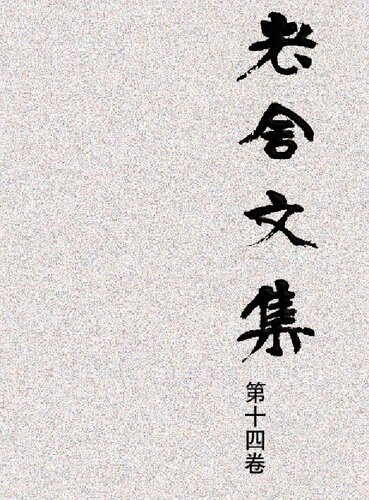 老舍文集
第十四卷